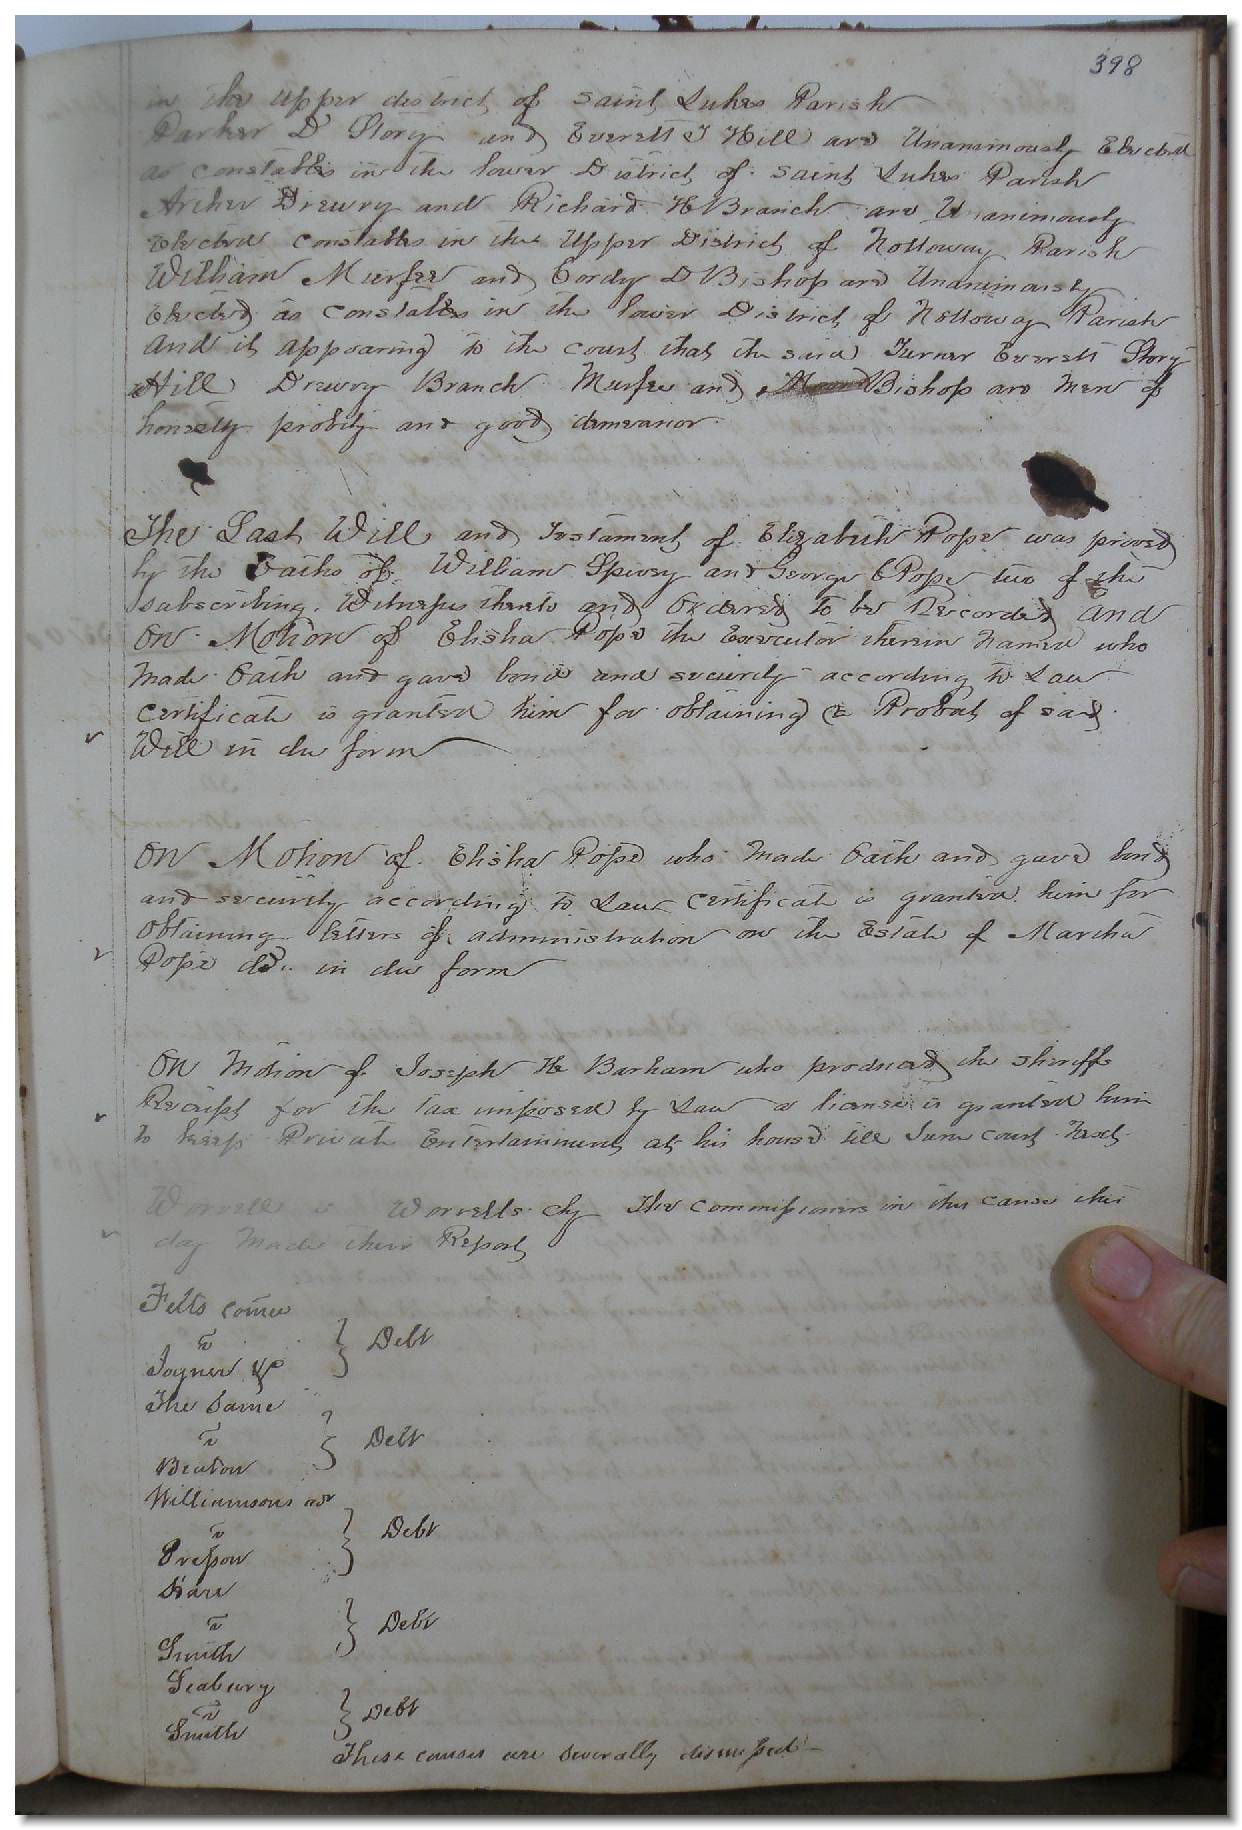 398
in the Upper district of Saint Lukes Parish
Parker D Story and Everett J Hill are Unanimously Elected
as constables in the lower District of Saint Lukes Parish
Archer Drewry and Richard H Branch are Unanimously
Elected constables in the Upper District of Nottoway Parish
William Murfee and Cordy D Bishop are Unanimously
Elected as Constables in the lower District of Nottoway Parish
And it appearing to the court that the said Turner Everett Story
Hill Drewry Branch Murfee and Bishop are men of
honesty probity and good demeanor
The Last Will and Testament of Elizabeth Pope was proved
by the Oaths of William Spivey and George Pope two of the
subscribing Witnesses thereto and Ordered to be Recorded and
On Motion of Elisha Pope the Executor therein Named who
Made Oath and gave bond and security according to Law
Certificate is granted him for obtaining a Probat of said
Will in due form
On Motion of Elisha Pope who Made Oath and gave bond
and security according to Law Certificate is granted him for
Obtaining letters of administration on the Estate of Martha
Pope decd. in due form
On Motion of Joseph H Barham who produced the sheriffs
Receipt for the tax imposed by Law a license is granted him
to keep Private Entertainment at his house till June court Next
Worrell v Worrells chy The commissioners in this cause this
day Made their Report
Felts comee
v } Debt
Joyner &c
The Same
v } Debt
Beaton
Williamsons adr
v } Debt
Presson
Hare
v } Debt
Smith
Seabury
v } Debt
Smith
These causes are Severally dismissed